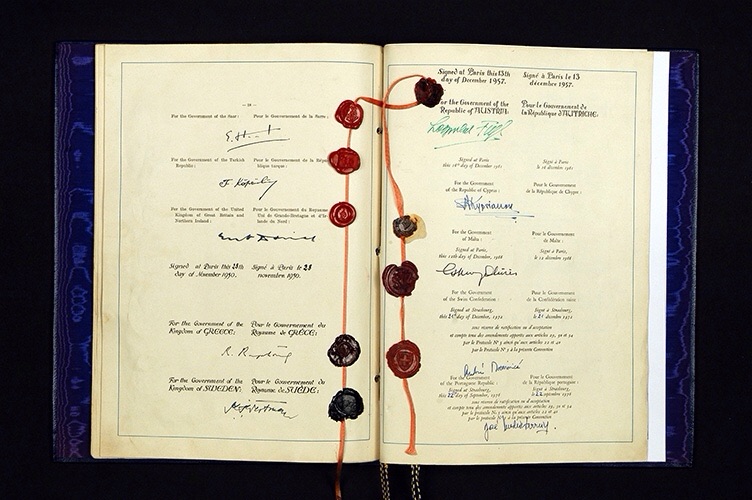 — 18 —
For the Government of the Saar:
Pour le Gouvernement de la Sarre:
For the Government of the Turkish
Republic:
Pour le Gouvernement de la Répu-
blique turque:
For the Government of the United
Kingdom of Great Britain and
Northern Ireland:
Pour le Gouvernement du Royaume
Uni de Grande-Bretagne et d'Ir-
lande du Nord:
Signed at Paris this 28th
day of November 1950.
Signé à Paris le 28
novembre 1950.
For the Government of the
Kingdom of GREECE:
Pour le Gouvernement du
Royaume de GRÈCE:
For the Government of the
Kingdom of SWEDEN:
Pour le Gouvernement du
Royaume de SUÈDE:
Signed at Paris this 13th
day of December 1957.
Signé à Paris le 13
décembre 1957.
For the Government of the
Republic of AUSTRIA:
Pour le Gouvernement de
la République d'AUTRICHE:
Leopold Figl
Signed at Paris
this 16th day of December 1961
Signé à Paris
le 16 décembre 1961
For the Government
of the Republic of Cyprus:
Pour le Gouvernement
de la République de Chypre:
For the Government
of Malta:
Pour le Gouvernement
de Malte:
Signed at Paris,
this 12th day of December, 1966
Signé à Paris,
le 12 décembre 1966
For the Government
of the Swiss Confederation:
Pour le Gouvernement
de la Confédération suisse:
Signed at Strasbourg,
this 21st day of December, 1972
Signé à Strasbourg,
le 21 décembre 1972
sous réserve de ratification ou d'acceptation
et compte tenu des amendements apportés aux articles 29, 30 et 34
par le Protocole N° 3 ainsi qu'aux articles 22 et 40
par le Protocole N° 5 à la présente Convention
For the Government
of the Portuguese Republic:
Pour le Gouvernement
de la République portugaise:
Signed at Strasbourg,
this 22nd day of September, 1976
Signé à Strasbourg,
le 22 septembre 1976
sous réserve de ratification ou d'acceptation
et compte tenu des amendements apportés aux articles 29, 30 et 34
par le Protocole N° 3 ainsi qu'aux articles 22 et 40
par le Protocole N° 5 à la présente Convention